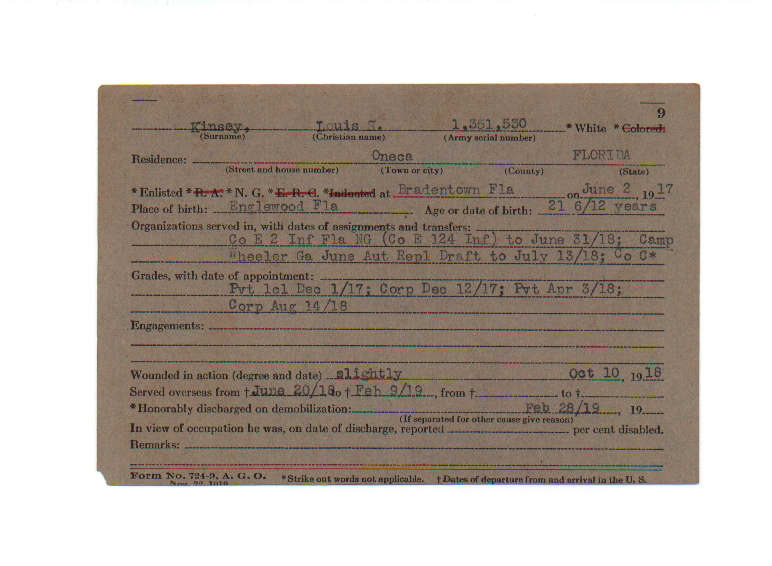 9
Kinsey, Louis 1,351,530 * White * Colored.
(Surname) (Christian name) (Army serial number)
Residence: Oneca FLORIDA
(Street and house number) (Town or city) (County) (State)
* Enlisted * R. A. * N. G. * E. R. C. * Inducted at Bradentown Fla on June 2, 1917
Place of birth: Englewood Fla Age or date of birth: 21 6/12 years
Organizations served in, with dates of assignments and transfers:
Co E 2 Inf Fla NG (Co E 124 Inf) to June 31/18; Camp
Wheeler Ga June Aut Repl Draft to July 13/18; Co C*
Grades, with date of appointment:
Pvt 1cl Dec 1/17; Corp Dec 12/17; Pvt Apr 3/18;
Corp Aug 14/18
Engagements:
Wounded in action (degree and date) slightly Oct 10, 1918
Served overseas from † June 20/18 to † Feb 9/19, from † to †
* Honorably discharged on demobilization: Feb 28/19, 19
(If separated for other cause give reason)
In view of occupation he was, on date of discharge, reported per cent disabled.
Remarks:
Form No. 724-9, A. G. O. * Strike out words not applicable. † Dates of departure from and arrival in the U. S.
Nov. 22, 1919